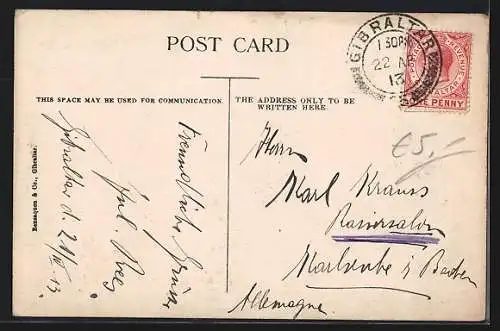 POST CARD
THIS SPACE MAY BE USED FOR COMMUNICATION.
THE ADDRESS ONLY TO BE
WRITTEN HERE.
Benzaquen & Co., Gibraltar.
Gibraltar d. 21/IV 13.
Freundliche Grüsse
Jul.
GIBRALTAR
1 30PM
22 A
13
POSTAGE & REVENUE
GIBRALTAR
ONE PENNY
€5,-
Herrn
Karl Krauss
Kaisersalon
Karlsruhe i/ Baden
Allemagne.